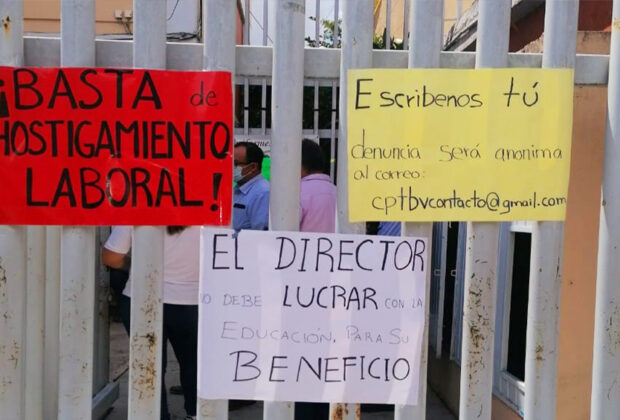 ¡BASTA de
HOSTIGAMIENTO
LABORAL!
Escribenos tú
denuncia será anonima
al correo:
cptbvcontacto@gmail.com
EL DIRECTOR
NO DEBE LUCRAR CON LA
EDUCACIÓN, PARA SU
BENEFICIO